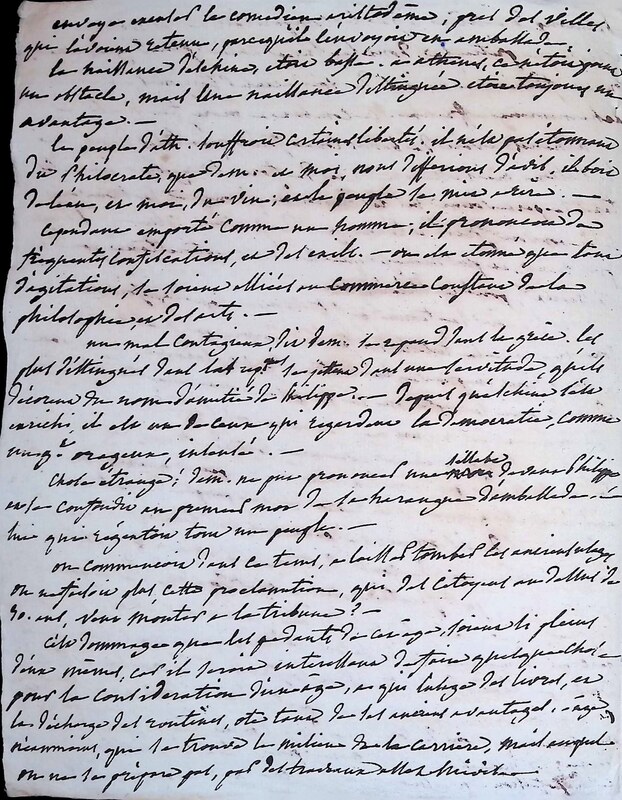 envoya excuser le comedien aristodême, pres des villes
qui l'avoient retenu, parcequ'ils l'envoyoient en ambassade.
la naissance d'eschine, etoit basse. a athenes, ce n'etoit point
un obstacle, mais une naissance distinguée etoit toujours un
avantage. —
le peuple d'ath. souffroit certaines libertés. il n'est pas étonnant
dit Philocrate, que dem. et moi, nous differions d'avis. il boit
de l'eau, et moi, du vin; et le peuple se mit a rire. —
cependant emporté comme un homme, il prononcoit de
fréquentes confiscations, et des exils. — on est étonné que tant
d'agitations, se soient alliées au commerce constant de la
philosophie, et des arts. —
un mal contagieux, dit dem. se repand dans la grèce. les
plus distingués dans les rep. se jettent dans une servitude, qu'ils
décorent du nom d'amitié de Philippe. — depuis qu'eschine s'est
enrichi, il est un de ceux qui regardent la democratie, comme
un orageux, insensé. —
chose étrange! dem. ne put prononcer une sillabe devant Philippe
et se confondit au premier mot de sa harangue d'ambassade.
lui qui régentoit tout un peuple. —
on commencoit dans ce tems, a laisser tomber les anciens usages
on ne faisoit plus cette proclamation, qui des citoyens au dessus de
50. ans, veut monter a la tribune? —
c'est dommage que les pedants de cet age, soient si pleins
d'eux mêmes, car il seroit interessant de faire quelque chose
pour la consideration d'un age, a qui l'usage des livres, et
la décharge des routines, ote tant de ses anciens avantages. age
néanmoins, qui se trouve le milieu de la carrière, mais auquel
on ne se prépare pas, par des travaux assez